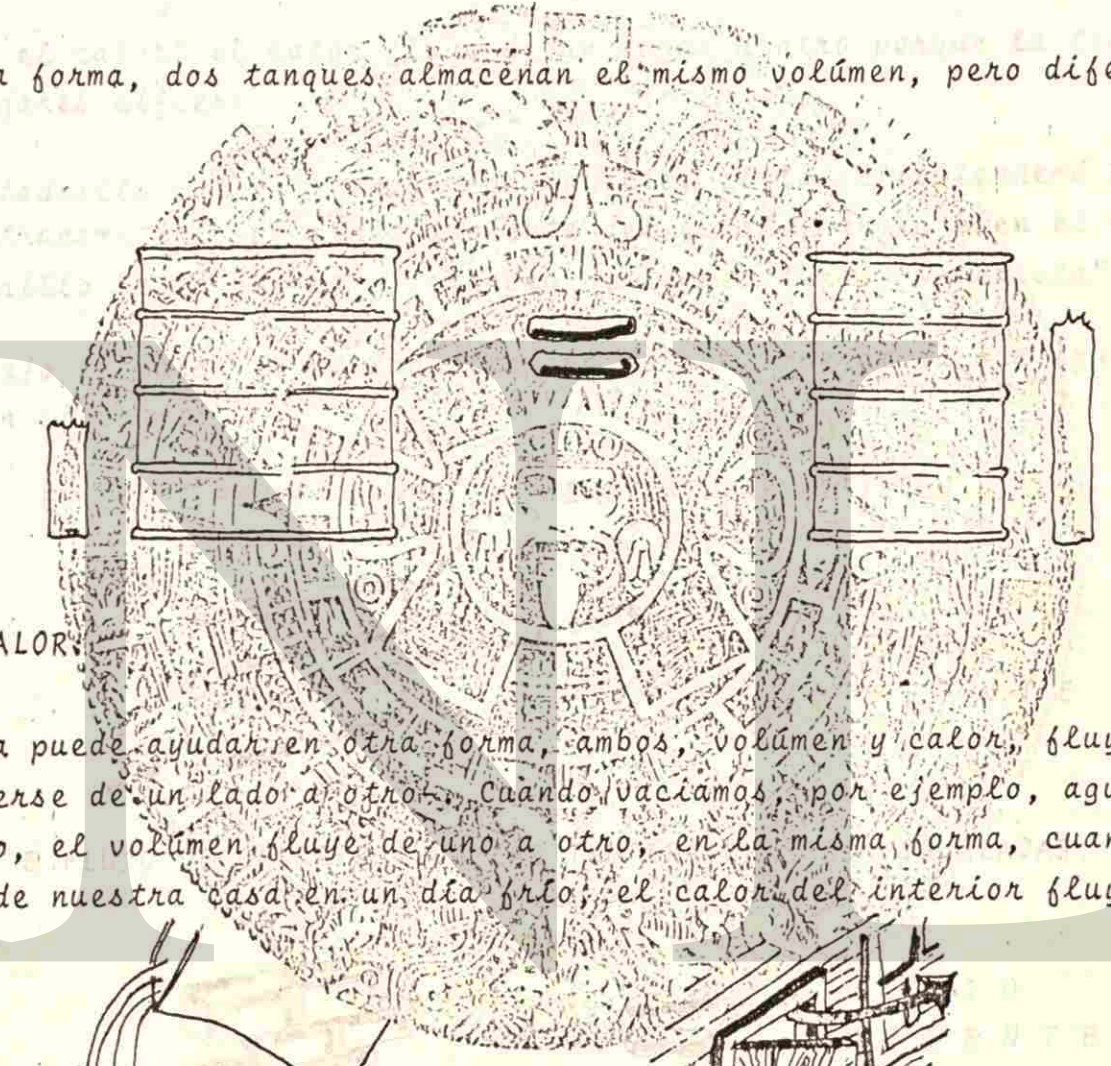 a forma, dos tanques almacenan el mismo volúmen, pero dife
ALOR.
a puede ayudar en otra forma, ambos, volúmen y calor, fluy
erse de un lado a otro-. Cuando vaciamos, por ejemplo, agu
o, el volúmen fluye de uno a otro, en la misma forma, cuan
de nuestra casa en un día frío, el calor del interior fluy